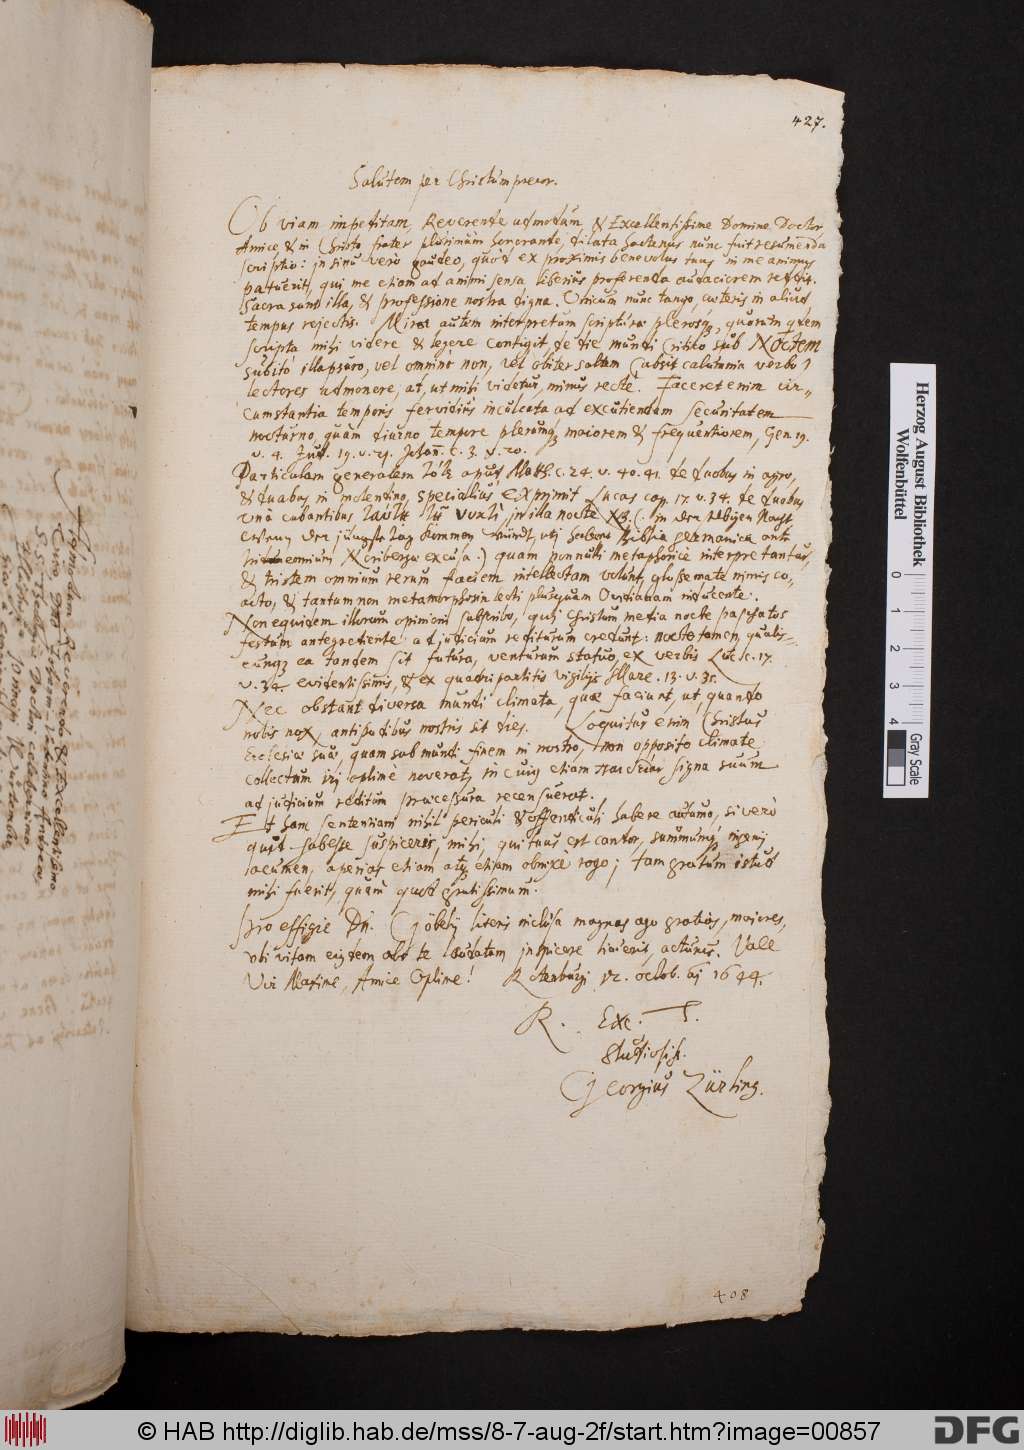 427.
Salutem per Christum precor.
Ob viam impeditam, Reverende admodum, & Excellentissime Domine Doctor
Amice & in Christo frater plurimum honorande, dilata hactenus nunc fuit resumenda
scriptio: in sinu verò gaudeo, quòd ex proximis benevolus tuus in me animus
patuerit, qui me etiam ad animi sensa liberius proferenda audaciorem reddit.
Sacra sunt illa, & professione nostra digna. Unicum nunc tango, caeteris in aliud
tempus rejectis. Miror autem interpretum scripturae plerosq, quorum qdem
scripta mihi videre & legere contigit de die mundi Christo sub Noctem
subitò illapsuro, vel omninò non, vel obiter saltem (absit calumnia verbo)
lectores admonere, at, ut mihi videtur, minus rectè. Faceret enim cir-
cumstantia temporis fervidius inculcata ad excutiendam securitatem
nocturno, quàm diurno tempore plerumq maiorem & frequentiorem, Gen. 19.
v. 4. Jud. 19. v. 21. Johan. c. 3. v. 20.
Particulam generalem τότε apud Matth. c. 24. v. 40. 41. de duobus in agro,
& duabus in molendino, specialius exprimit Lucas cap. 17. v. 34. de duobus
unà cubantibus ταύτῃ τῇ νυκτὶ, in illa nocte (: in der selbigen Nacht
wenn der jüngste tag kommen würdt, uti habent Biblia germanica ante
Noribergae excusa:) quam nonnulli metaphoricè interpretantur,
& tristem omnium rerum faciem intellectam volunt, glossemate nimis co-
acto, & tantum non metamorphosin lecti plusquam Ovidianam inducente.
Non equidem illorum opinioni subscribo, qui Christum media nocte paschatos
festum antegrediente ad judicium rediturum credunt: nocte tamen, quali-
cunq ea tandem sit futura, venturum statuo, ex verbis Luc. c. 17.
v. 34. evidentissimis, & ex quadripartitis vigiliis Marc. 13. v. 35.
Nec obstant diversa mundi climata, quae faciunt, ut, quando
nobis nox, antipodibus nostris sit dies. Loquitur enim Christus
Ecclesiae suae, quam sub mundi finem in nostro, non opposito climate
collectam iri optimè noverat, in cuius etiam signa suum
ad judicium reditum praecessura recensuerat.
Et hanc sententiam nihil periculi & offendiculi habere autumo, si verò
quid subesse suspiceris, mihi, qui tuus est candor, summumq ingenij
acumen, aperias etiam atq etiam obnixè rogo; tam gratum istud
mihi fuerit, quàm quod gratissimum.
Pro effigie Dn. Göbelij literis inclusa magnas ago gratias, maiores,
ubi vitam ejusdem abs te laudatam inspicere licuerit, acturus. Vale
Vir Maxime, Amice Optime! Rotenburgi oct. 1644.
R. Exc. T.
studiosiss.
Georgius Zürling.
408
Herzog August Bibliothek
Wolfenbüttel
0 1 2 3 4
Gray Scale
© HAB http://diglib.hab.de/mss/8-7-aug-2f/start.htm?image=00857
DFG